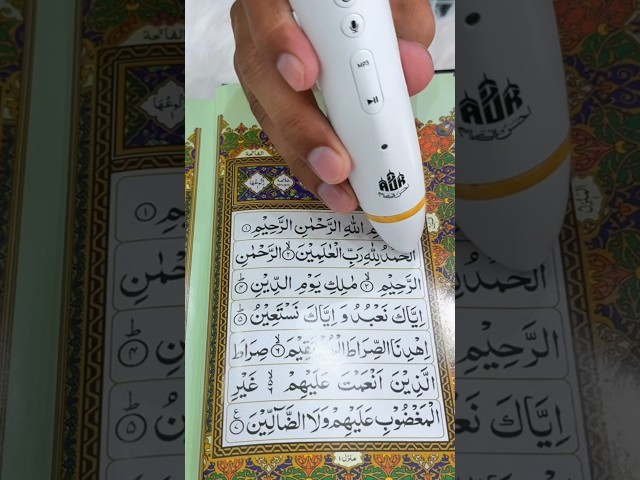 MP3
الفاتحة
اللهِ الرَّحْمٰنِ الرَّحِيْمِ ۝۱
اَلْحَمْدُ لِلّٰهِ رَبِّ الْعٰلَمِيْنَ ۝۲ الرَّحْمٰنِ
الرَّحِيْمِ ۝۳ مٰلِكِ يَوْمِ الدِّيْنِ ۝۴
اِيَّاكَ نَعْبُدُ وَ اِيَّاكَ نَسْتَعِيْنُ ۝۵
اِهْدِنَا الصِّرَاطَ الْمُسْتَقِيْمَ ۝۶ صِرَاطَ
الَّذِيْنَ اَنْعَمْتَ عَلَيْهِمْ غَيْرِ
الْمَغْضُوْبِ عَلَيْهِمْ وَلَا الضَّآلِّيْنَ ۝۷
منزل ۱